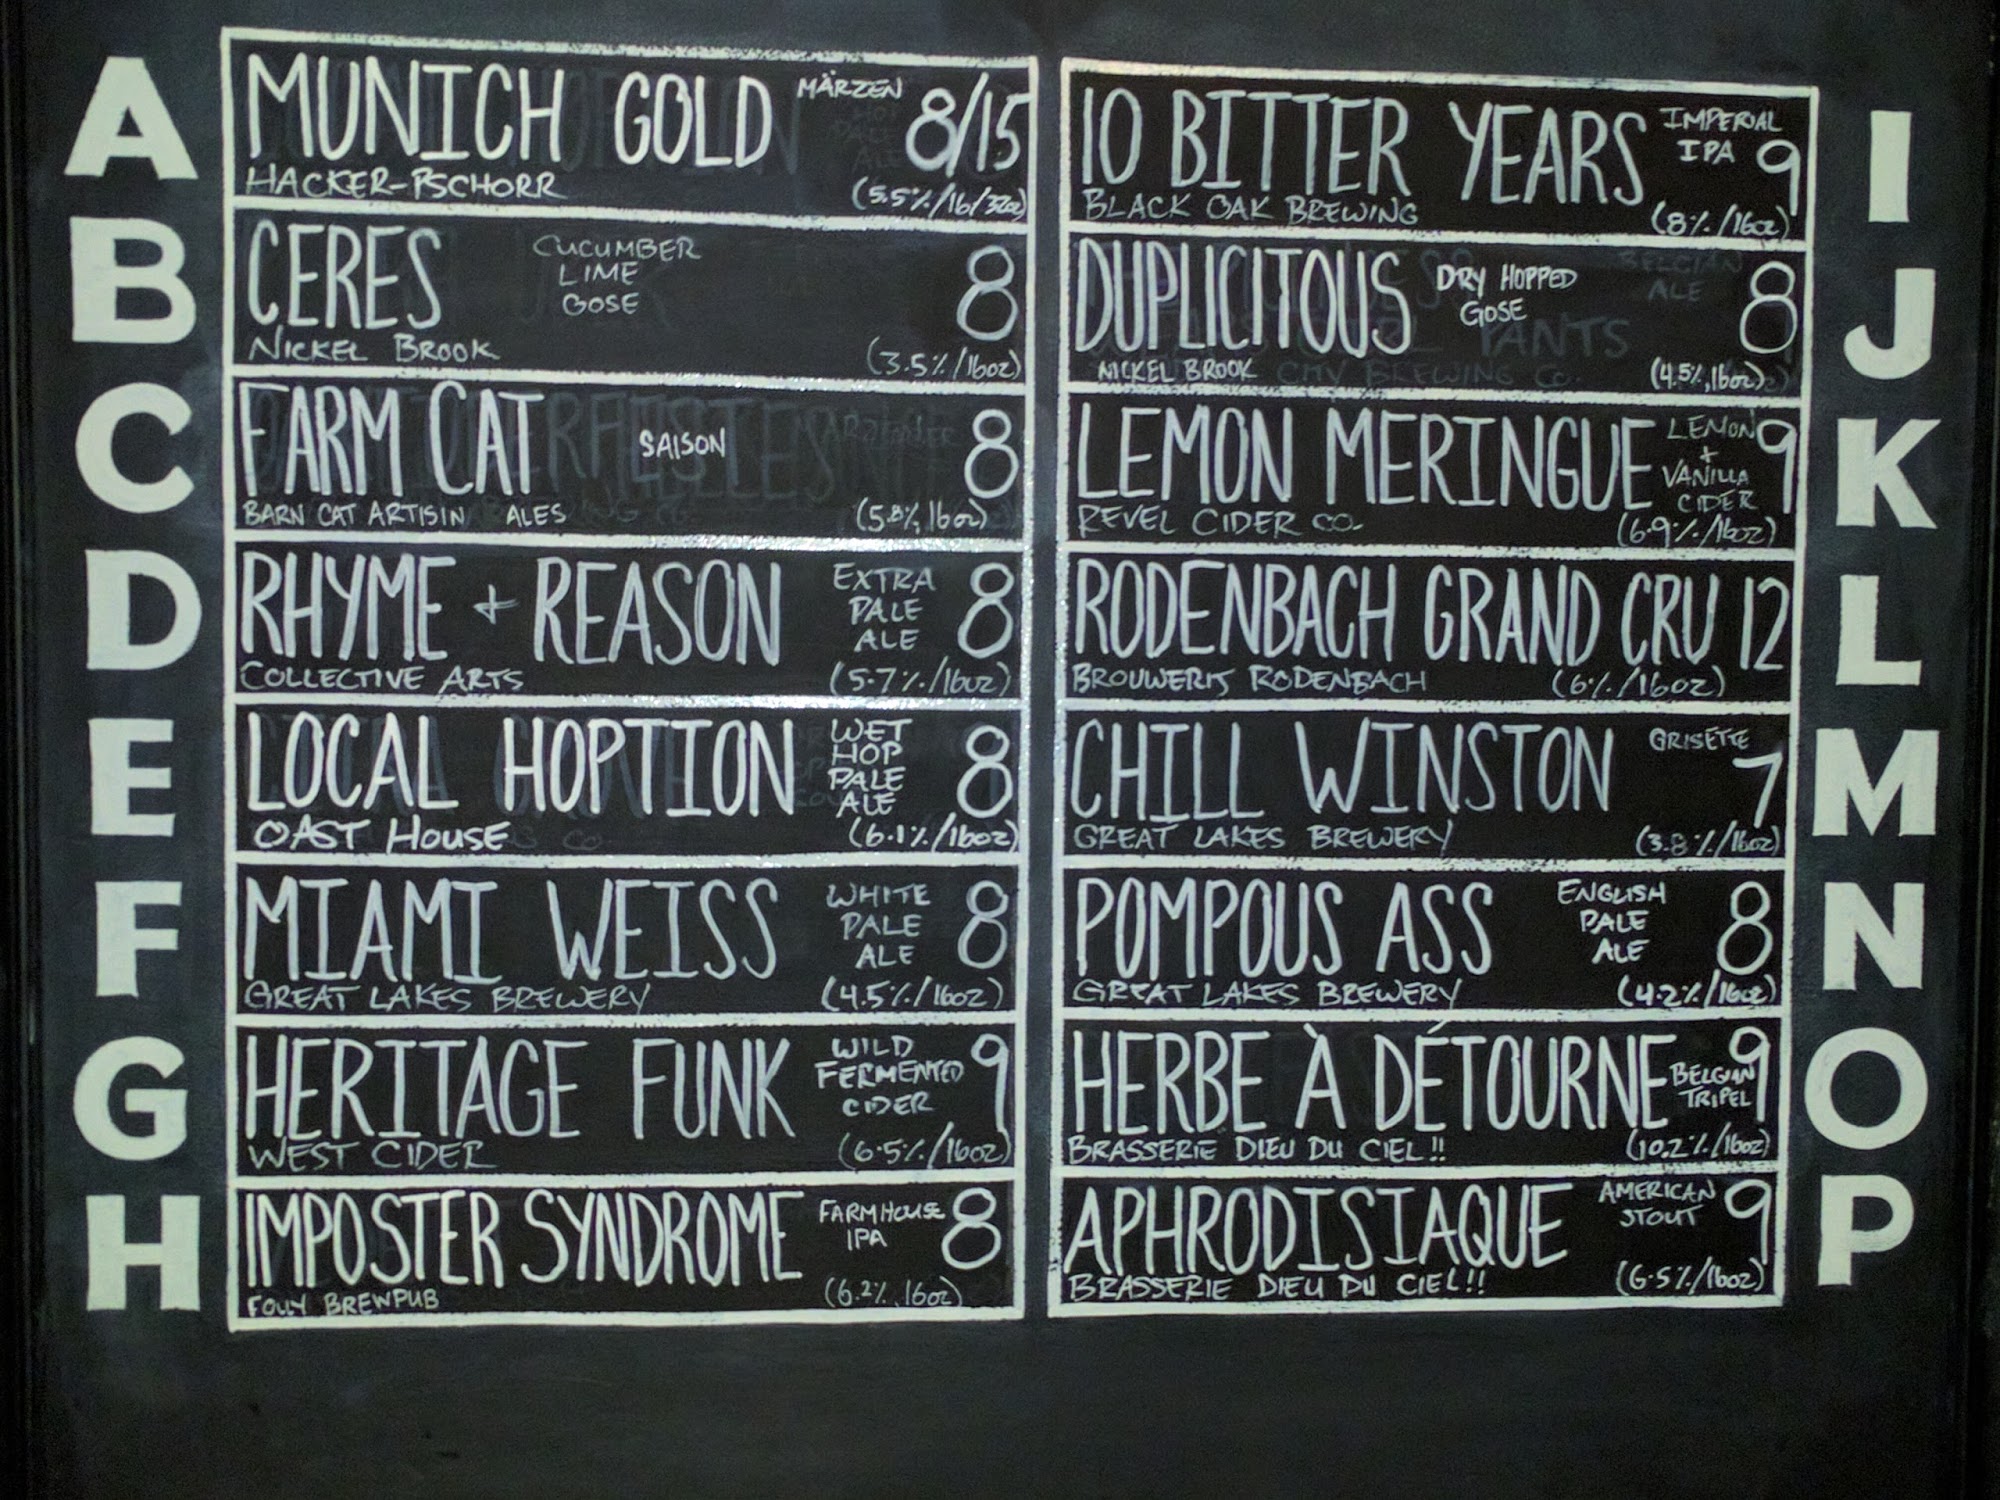 A
MUNICH GOLD MÄRZEN 8/15
HACKER-PSCHORR (5.5%/16/32oz)
B
CERES CUCUMBER LIME GOSE 8
NICKEL BROOK (3.5%/16oz)
C
FARM CAT SAISON 8
BARN CAT ARTISIN ALES (5.8%, 16oz)
D
RHYME + REASON EXTRA PALE ALE 8
COLLECTIVE ARTS (5.7%/16oz)
E
LOCAL HOPTION WET HOP PALE ALE 8
OAST HOUSE (6.1%/16oz)
F
MIAMI WEISS WHITE PALE ALE 8
GREAT LAKES BREWERY (4.5%/16oz)
G
HERITAGE FUNK WILD FERMENTED CIDER 9
WEST CIDER (6.5%/16oz)
H
IMPOSTER SYNDROME FARMHOUSE IPA 8
FOLLY BREWPUB (6.2%, 16oz)
I
10 BITTER YEARS IMPERIAL IPA 9
BLACK OAK BREWING (8%/16oz)
J
DUPLICITOUS DRY HOPPED GOSE 8
NICKEL BROOK (4.5%, 16oz)
K
LEMON MERINGUE LEMON + VANILLA CIDER 9
REVEL CIDER CO. (6.9%/16oz)
L
RODENBACH GRAND CRU 12
BROUWERIJ RODENBACH (6%/16oz)
M
CHILL WINSTON GRISETTE 7
GREAT LAKES BREWERY (3.8%/16oz)
N
POMPOUS ASS ENGLISH PALE ALE 8
GREAT LAKES BREWERY (4.2%/16oz)
O
HERBE À DÉTOURNE BELGIAN TRIPEL 9
BRASSERIE DIEU DU CIEL!! (10.2%/16oz)
P
APHRODISIAQUE AMERICAN STOUT 9
BRASSERIE DIEU DU CIEL!! (6.5%/16oz)